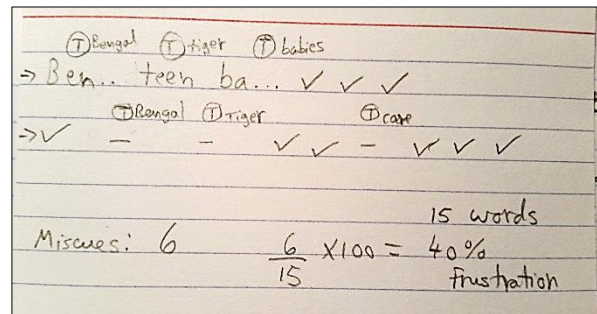 Ⓣ Bengal Ⓣ tiger Ⓣ babies
→ Ben.. teen ba... ✓ ✓ ✓
Ⓣ Bengal Ⓣ Tiger Ⓣ care
→ ✓ – – ✓ ✓ – ✓ ✓ ✓
15 words
Miscues: 6 6/15 X100 = 40%
frustration